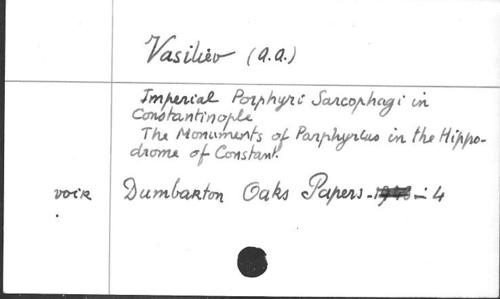 Vasiliev (A.A.)
Imperial Porphyri Sarcophagi in
Constantinople
The Monuments of Porphyrius in the Hippo-
drome of Constant.
voir Dumbarton Oaks Papers - 4